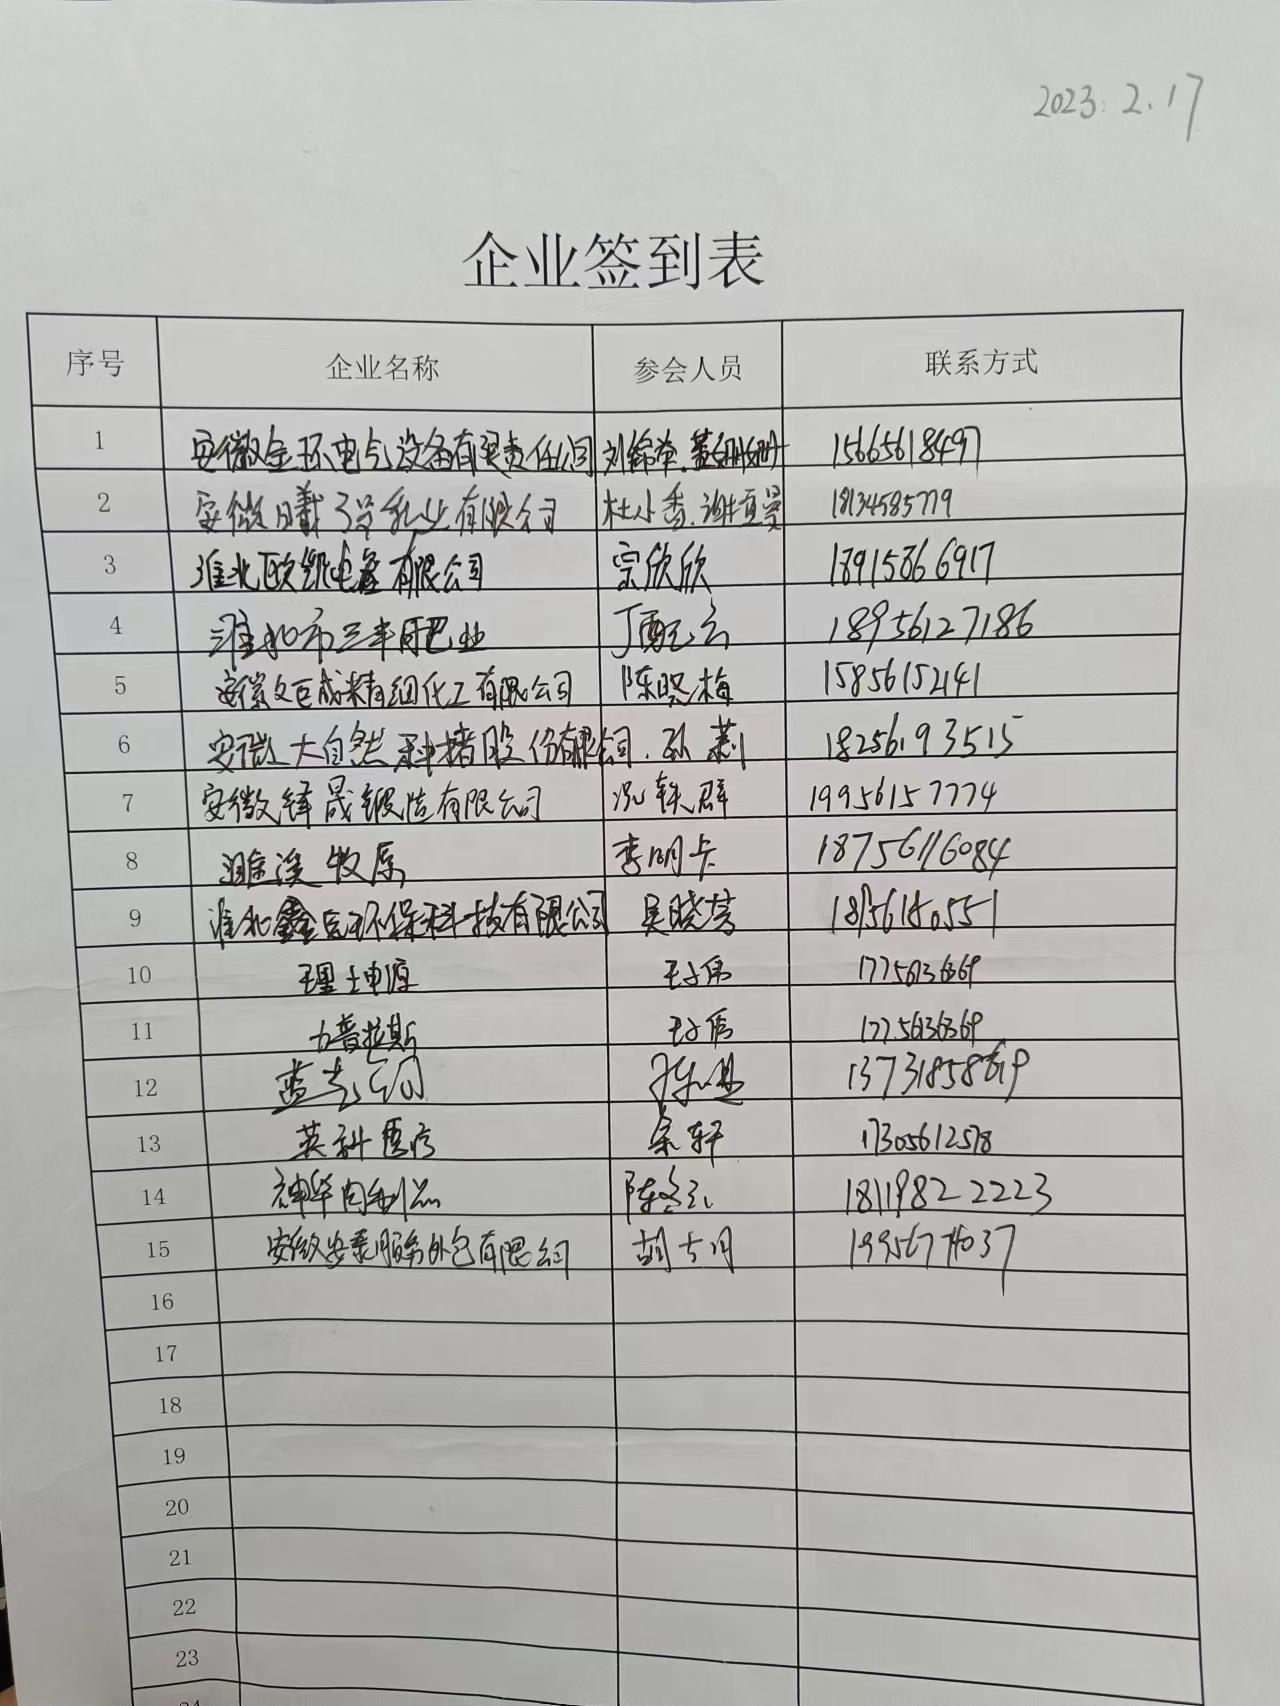 2023.2.17
企业签到表
序号 企业名称 参会人员 联系方式
1 安徽金环电气设备有限责任公司 刘锦荣、董姗姗 15665618497
2 安徽曦强乳业有限公司 杜小香、谢夏曼 18134585779
3 淮北欧凯电器有限公司 宗欣欣 18915866917
4 淮北市三丰肥业 丁配云 18956127186
5 安徽文巨成精细化工有限公司 陈晓梅 15856152141
6 安徽大自然种猪股份有限公司 孙莉 18256193515
7 安徽锋晟锻造有限公司 轶群 19956157774
8 濉溪牧原 李明卡 18756116084
9 淮北鑫 环保科技有限公司 吴晓芳 18156180551
10 理士电源 王子伟 17756136369
11 力普拉斯 王子伟 17756136369
12 蓝 陈 137318586
13 英科医疗 余轩 17305612578
14 神华肉制品 陈 18119822223
15 安徽安秉服务外包有限公司 胡 月
16
17
18
19
20
21
22
23
24